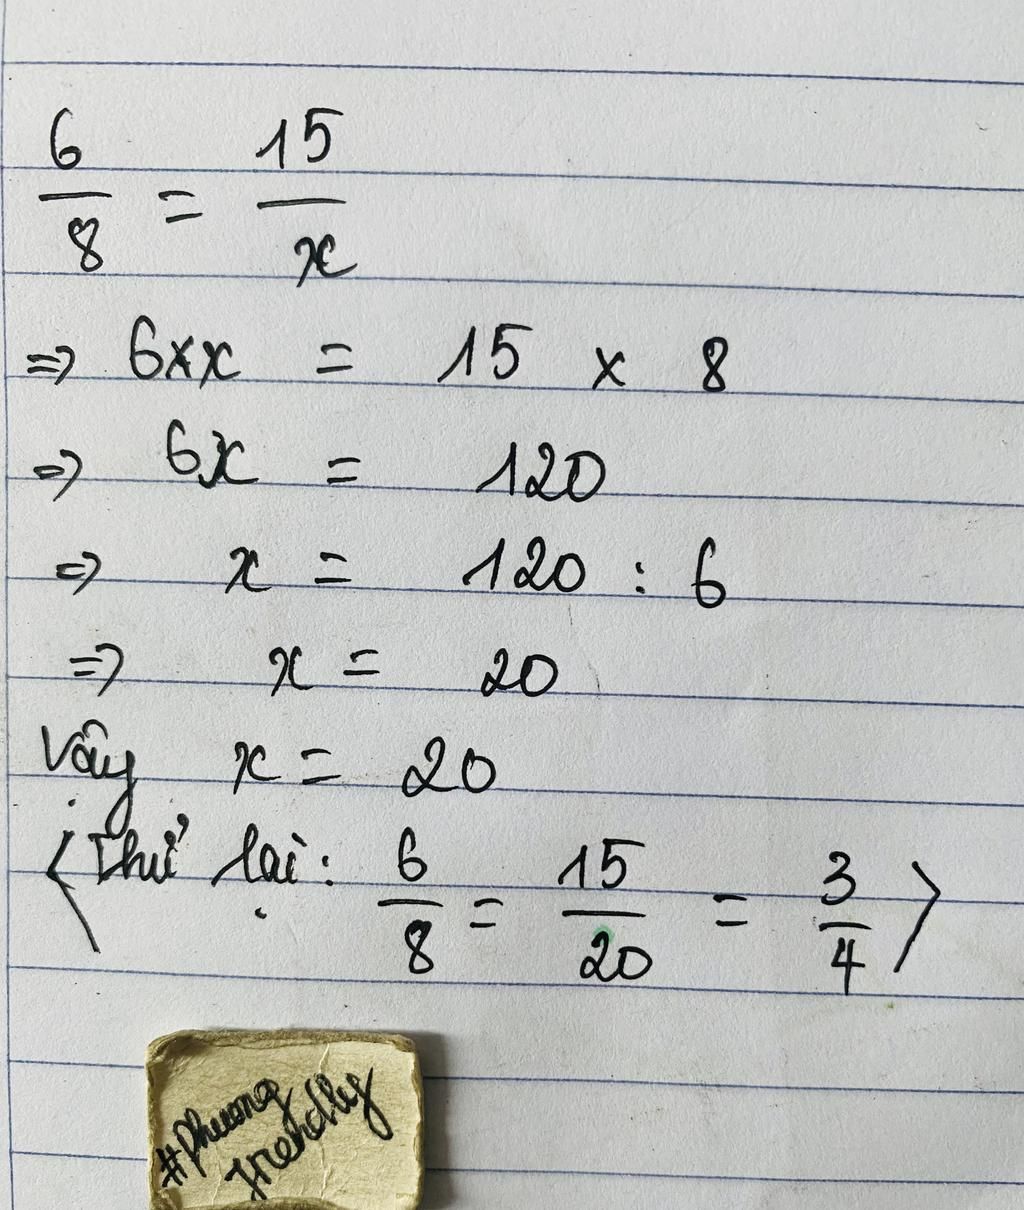 6/8 = 15/x
=> 6xx = 15 x 8
=> 6x = 120
=> x = 120 : 6
=> x = 20
Vậy x = 20
<Thử lại: 6/8 = 15/20 = 3/4>
#Phuong
friendly